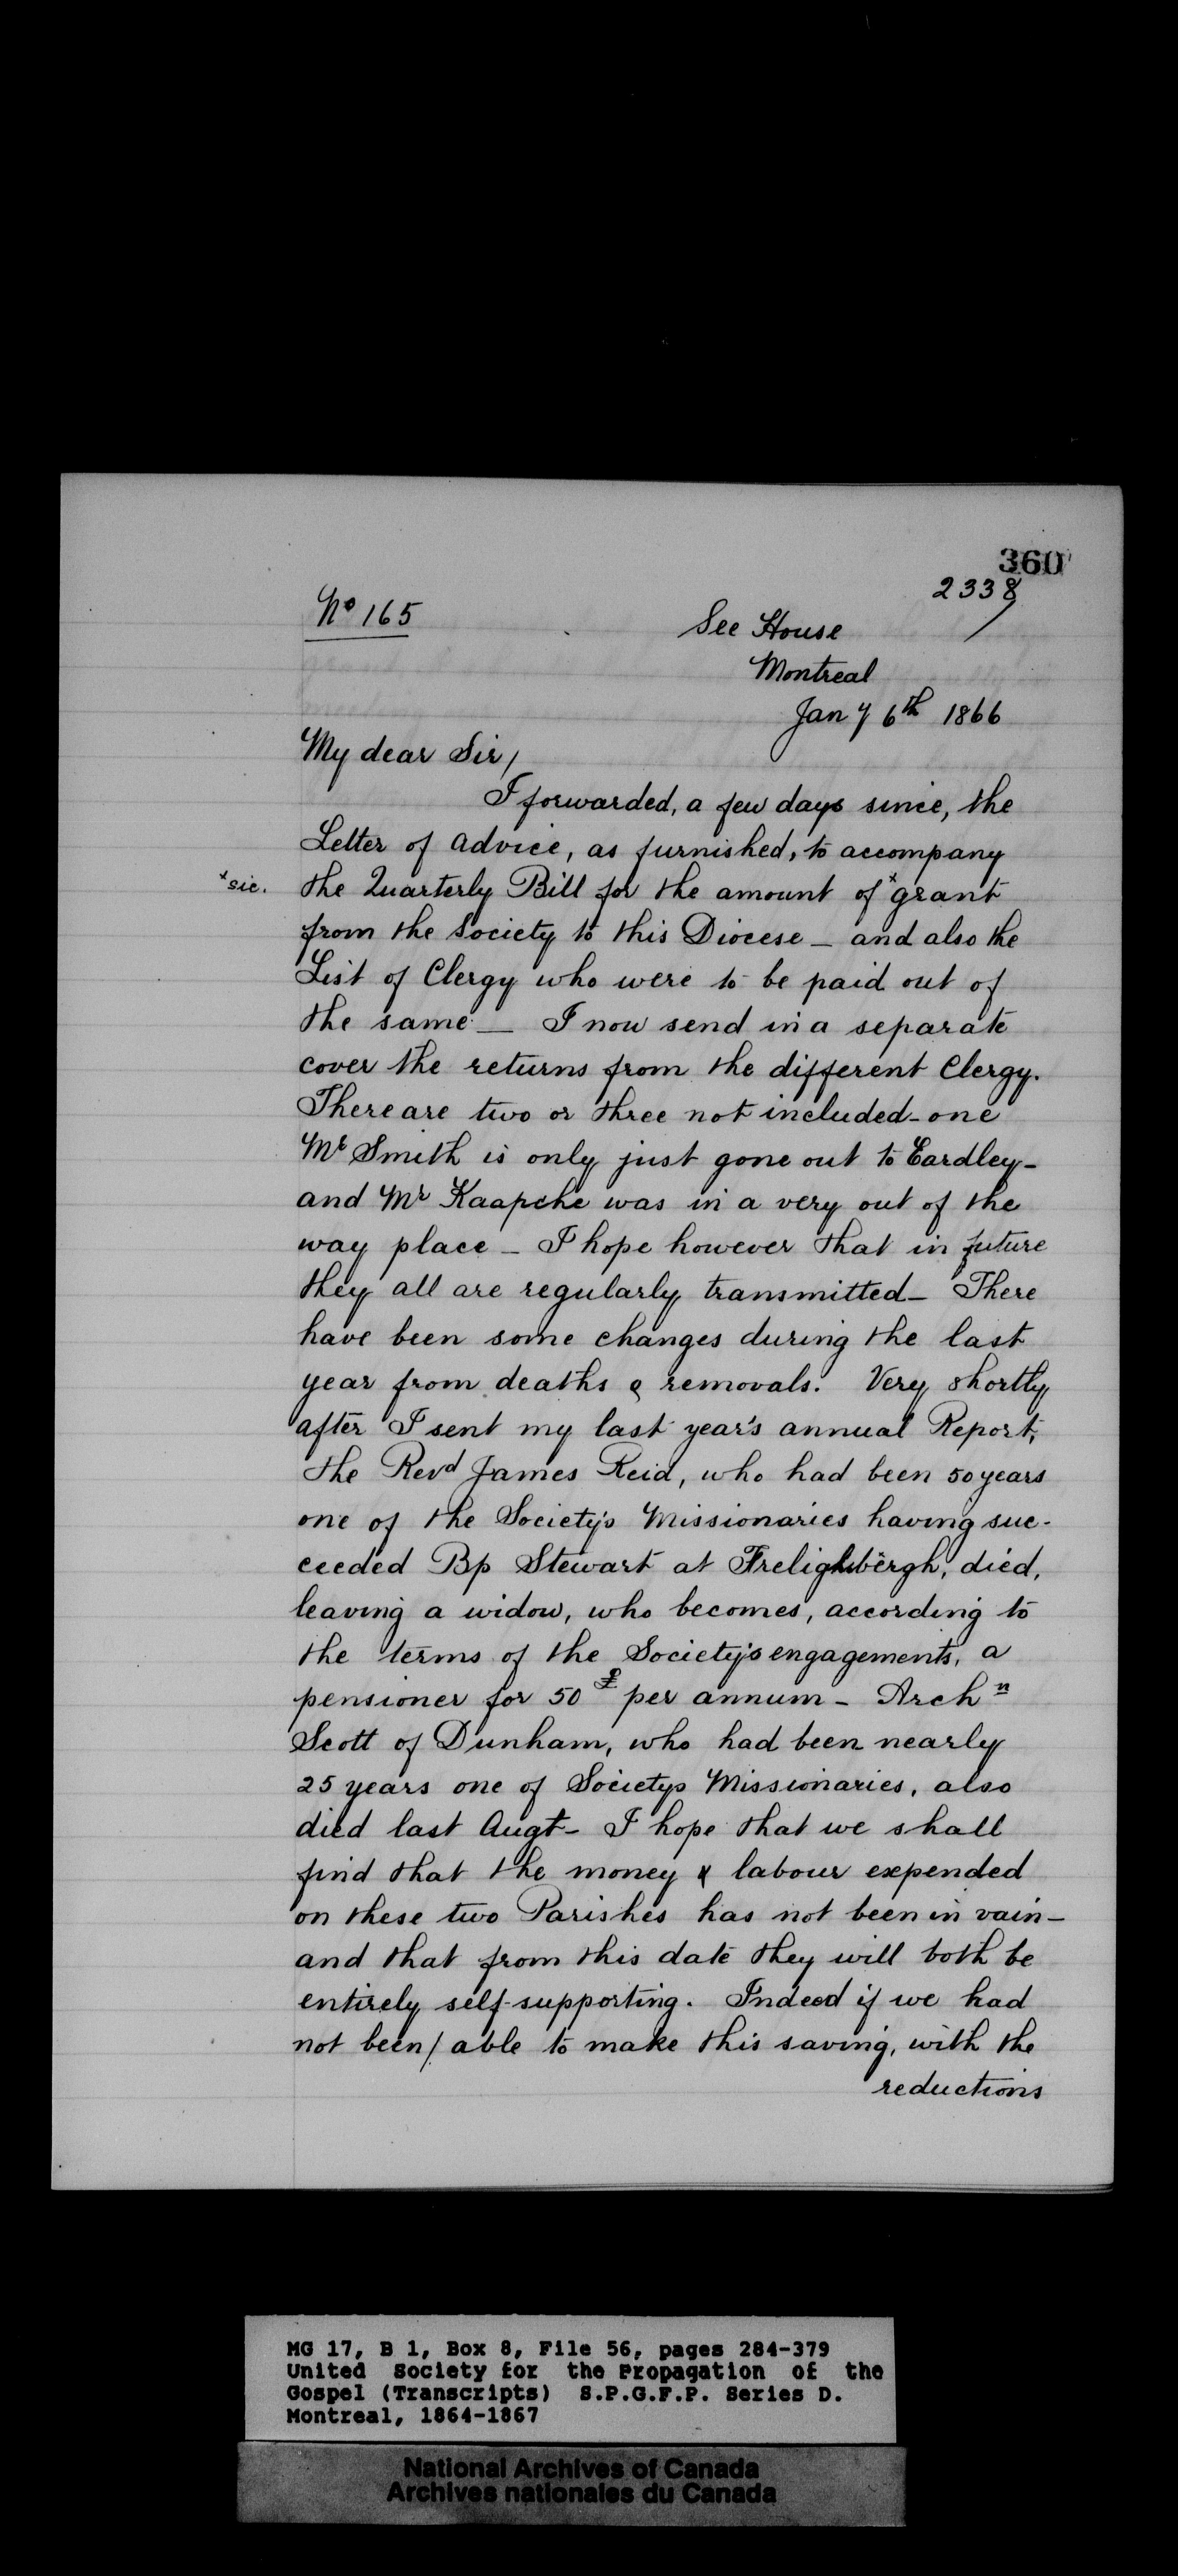 360
2338
Nº 165
See House
Montreal
Jany 6th 1866
My dear Sir,
I forwarded, a few days since, the
Letter of advice, as furnished, to accompany
*sic. the Quarterly Bill for the amount of *grant
from the Society to this Diocese — and also the
List of Clergy who were to be paid out of
the same — I now send in a separate
cover the returns from the different Clergy.
There are two or three not included - one
Mr Smith is only just gone out to Eardley -
and Mr Kaapche was in a very out of the
way place — I hope however that in future
they all are regularly transmitted — There
have been some changes during the last
year from deaths & removals. Very shortly
after I sent my last year's annual Report,
the Revd James Reid, who had been 50 years
one of the Society's Missionaries having suc-
ceeded Bp Stewart at Frelighsbergh, died,
leaving a widow, who becomes, according to
the terms of the Society's engagements, a
pensioner for 50£ per annum — Archn
Scott of Dunham, who had been nearly
25 years one of Societys Missionaries, also
died last Augt — I hope that we shall
find that the money & labour expended
on these two Parishes has not been in vain —
and that from this date they will both be
entirely self-supporting. Indeed if we had
not been/ able to make this saving, with the
reductions
MG 17, B 1, Box 8, File 56, pages 284-379
United Society for the Propagation of the
Gospel (Transcripts) S.P.G.F.P. Series D.
Montreal, 1864-1867
National Archives of Canada
Archives nationales du Canada